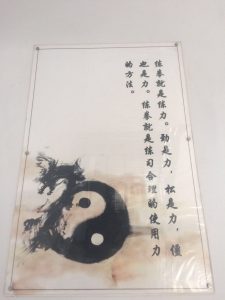 练拳就是练力。劲是力，松是力，僵
也是力。练拳就是练习合理的使用力
的方法。